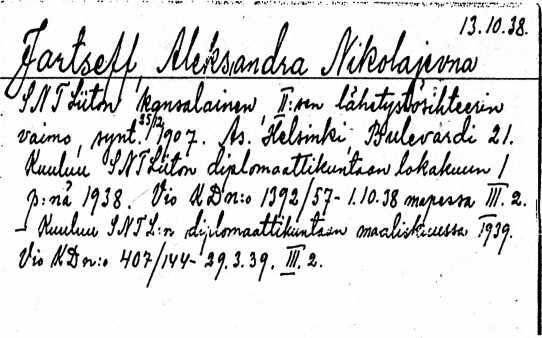 13.10.38.
Jartseff, Aleksandra Nikolajevna
SNTLiiton kansalainen, II:sen lähetystösihteerin
vaimo, synt. 25/12 1907. As. Helsinki, Bulevardi 21.
Kuuluu SNTLiiton diplomaattikuntaan lokakuun 1
p:nä 1938. Vio KD n:o 1392/57- 1.10.38 mapessa III. 2.
- Kuuluu SNTL:n diplomaattikuntaan maaliskuussa 1939.
Vio KD n:o 407/144- 29.3.39. III. 2.